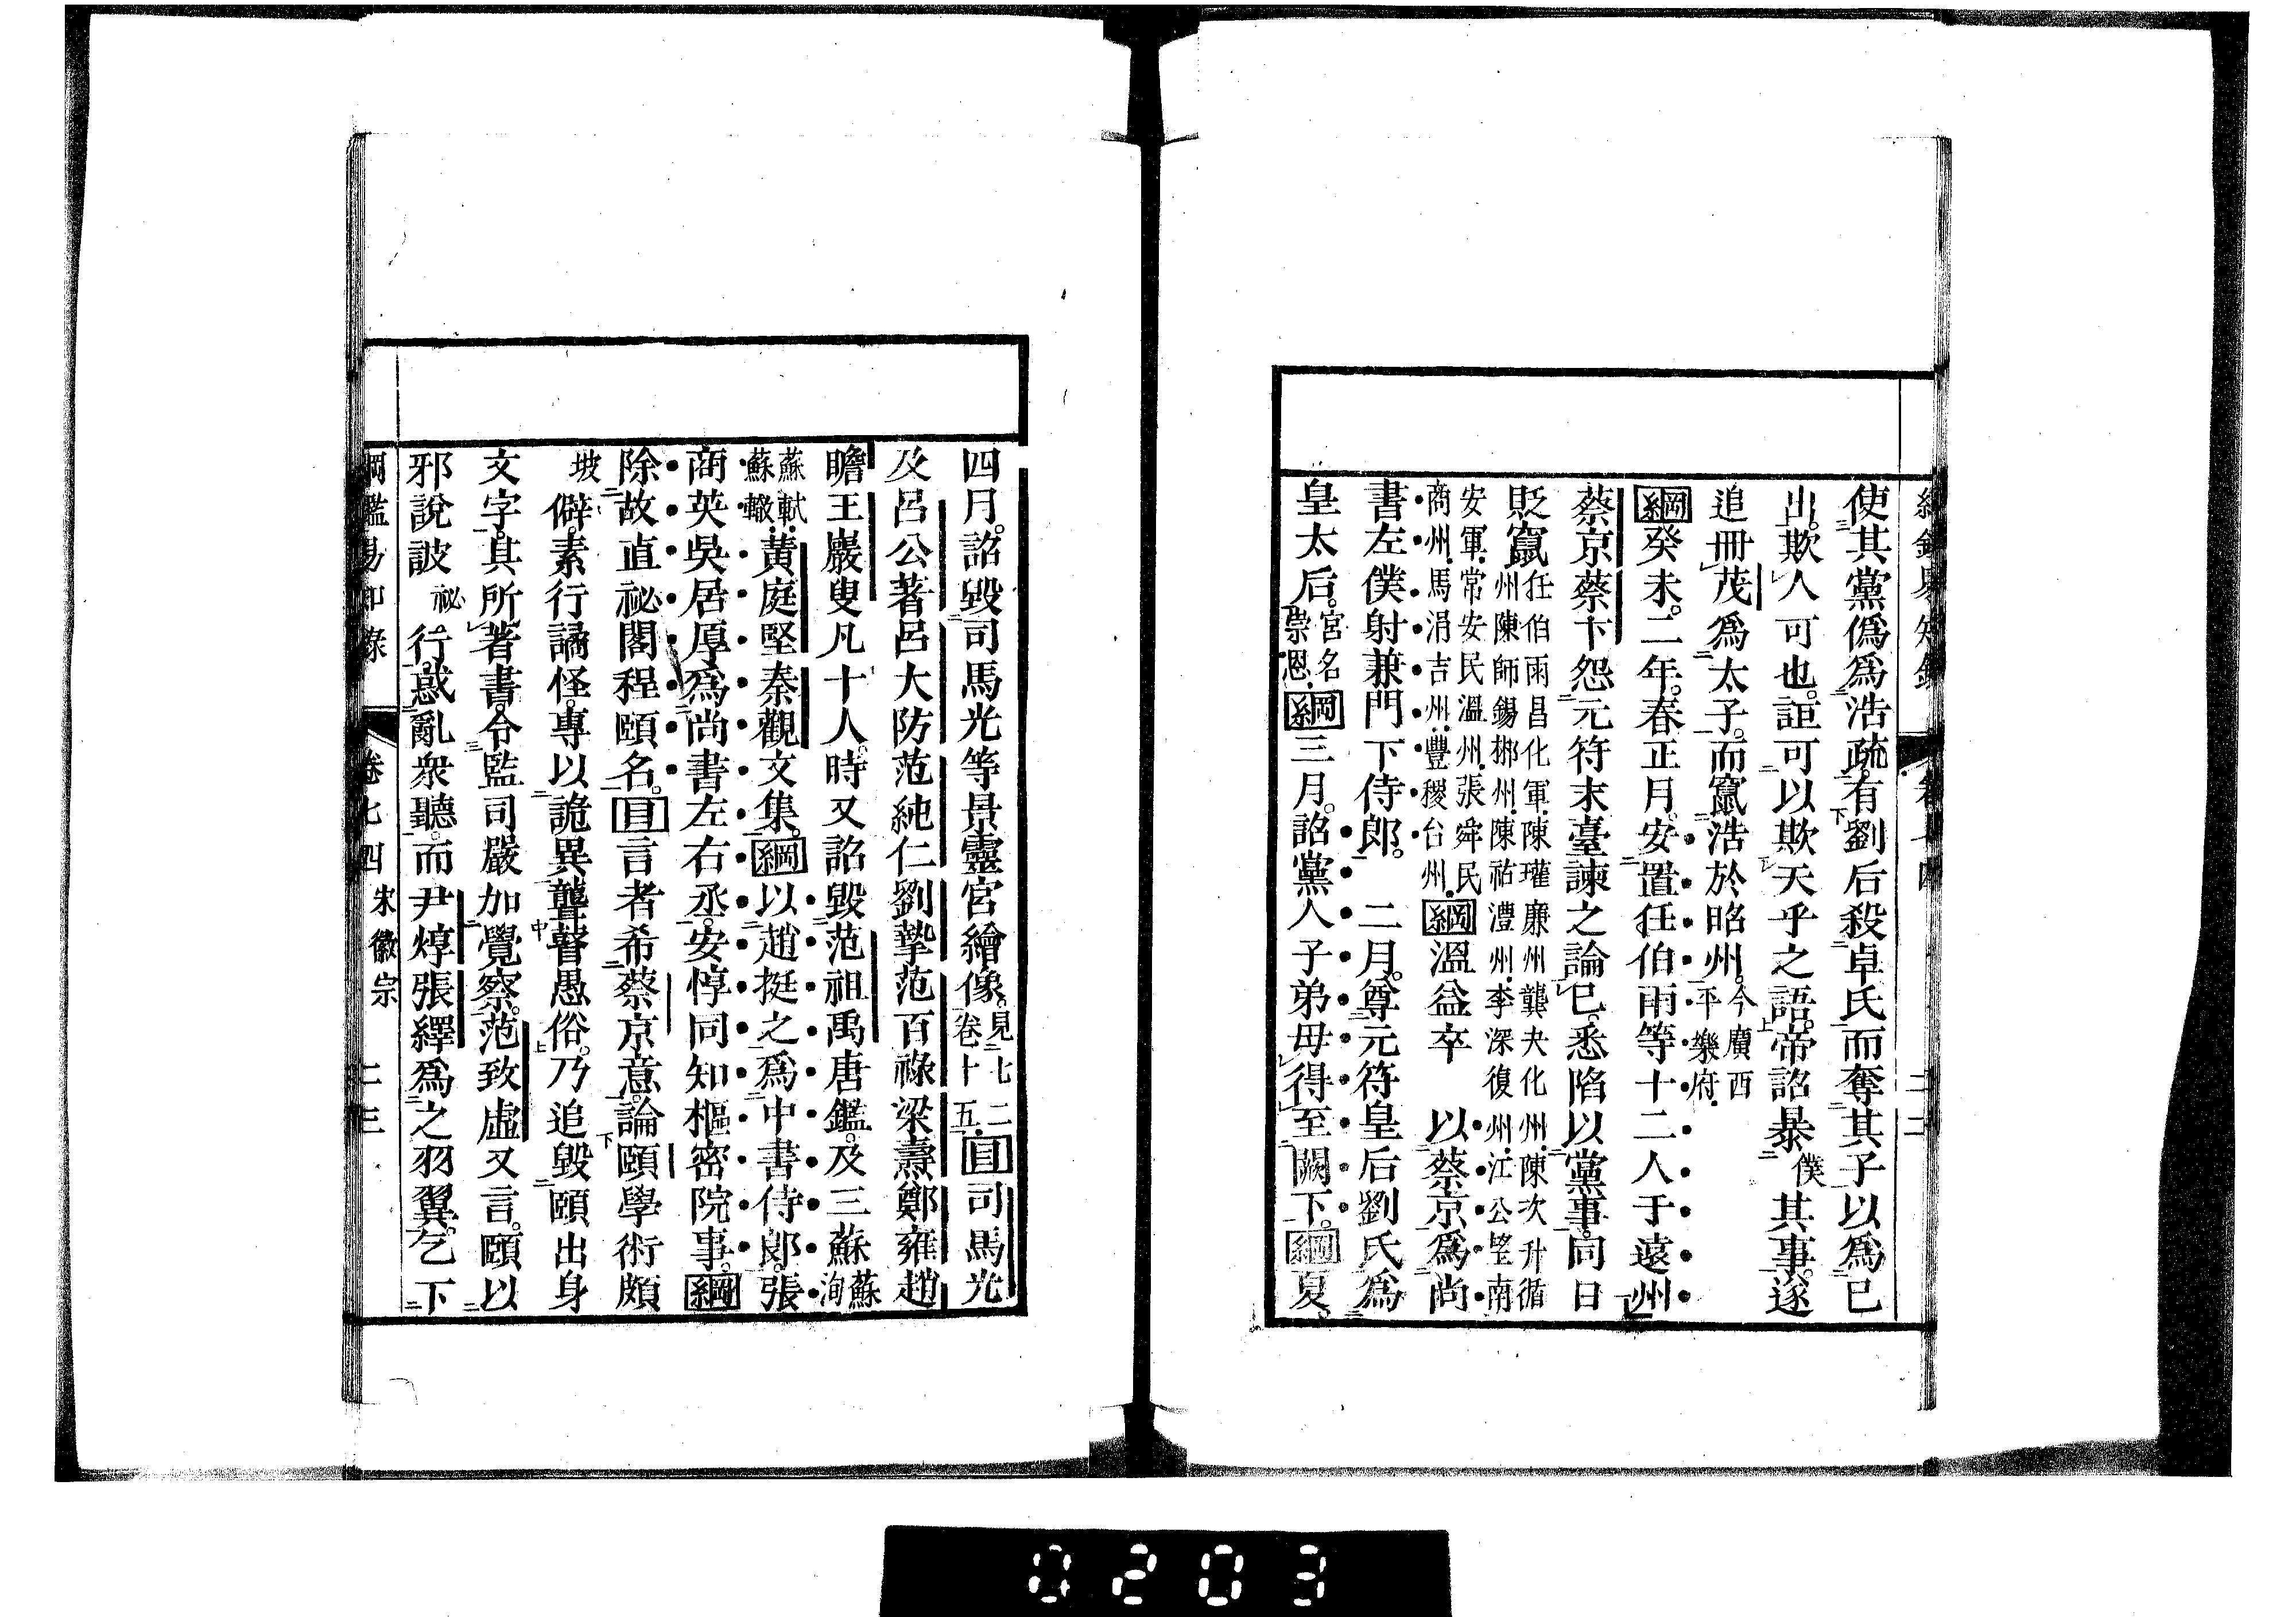 使其黨僞爲浩疏。有劉后殺卓氏而奪其子以爲己
出。欺人可也。誣可以欺天乎之語。帝詔暴僕其事。遂
追冊茂爲太子。而竄浩於昭州。今廣西平樂府.
綱癸未。二年。春正月。安置任伯雨等十二人于遠州
蔡京蔡卞怨元符末臺諫之論已。悉陷以黨事。同日
貶竄任伯雨昌化軍.陳瓘廉州龔夬化州.陳次升循州陳師錫郴州.陳祐澧州.李深復州.江公望南
安軍.常安民溫州.張舜民商州.馬涓吉州.豐稷台州.綱溫益卒 以蔡京爲尚
書左僕射兼門下侍郎。 二月。尊元符皇后劉氏爲
皇太后。宮名崇恩.綱三月。詔黨人子弟毋得至闕下。綱夏。
四月。詔毀司馬光等景靈宮繪像。見七二卷十五.目司馬光
及呂公著呂大防范純仁劉摯范百祿梁壽鄭雍趙
瞻王巖叟凡十人。時又詔毀范祖禹唐鑑。及三蘇蘇洵
蘇軾.蘇轍.黃庭堅秦觀文集。綱以趙挺之爲中書侍郎。張
商英吳居厚爲尚書左右丞。安惇同知樞密院事。綱
除故直祕閣程頤名。目言者希蔡京意。論頤學術頗
坡僻。素行譎怪。專以詭異聾瞽愚俗。乃追毀頤出身
文字。其所著書。令監司嚴加覺察。范致虛又言。頤以
邪說詖祕行。惑亂衆聽。而尹焞張繹爲之羽翼。乞下
綱鑑易知錄 卷七四 宋徽宗 二三
0203